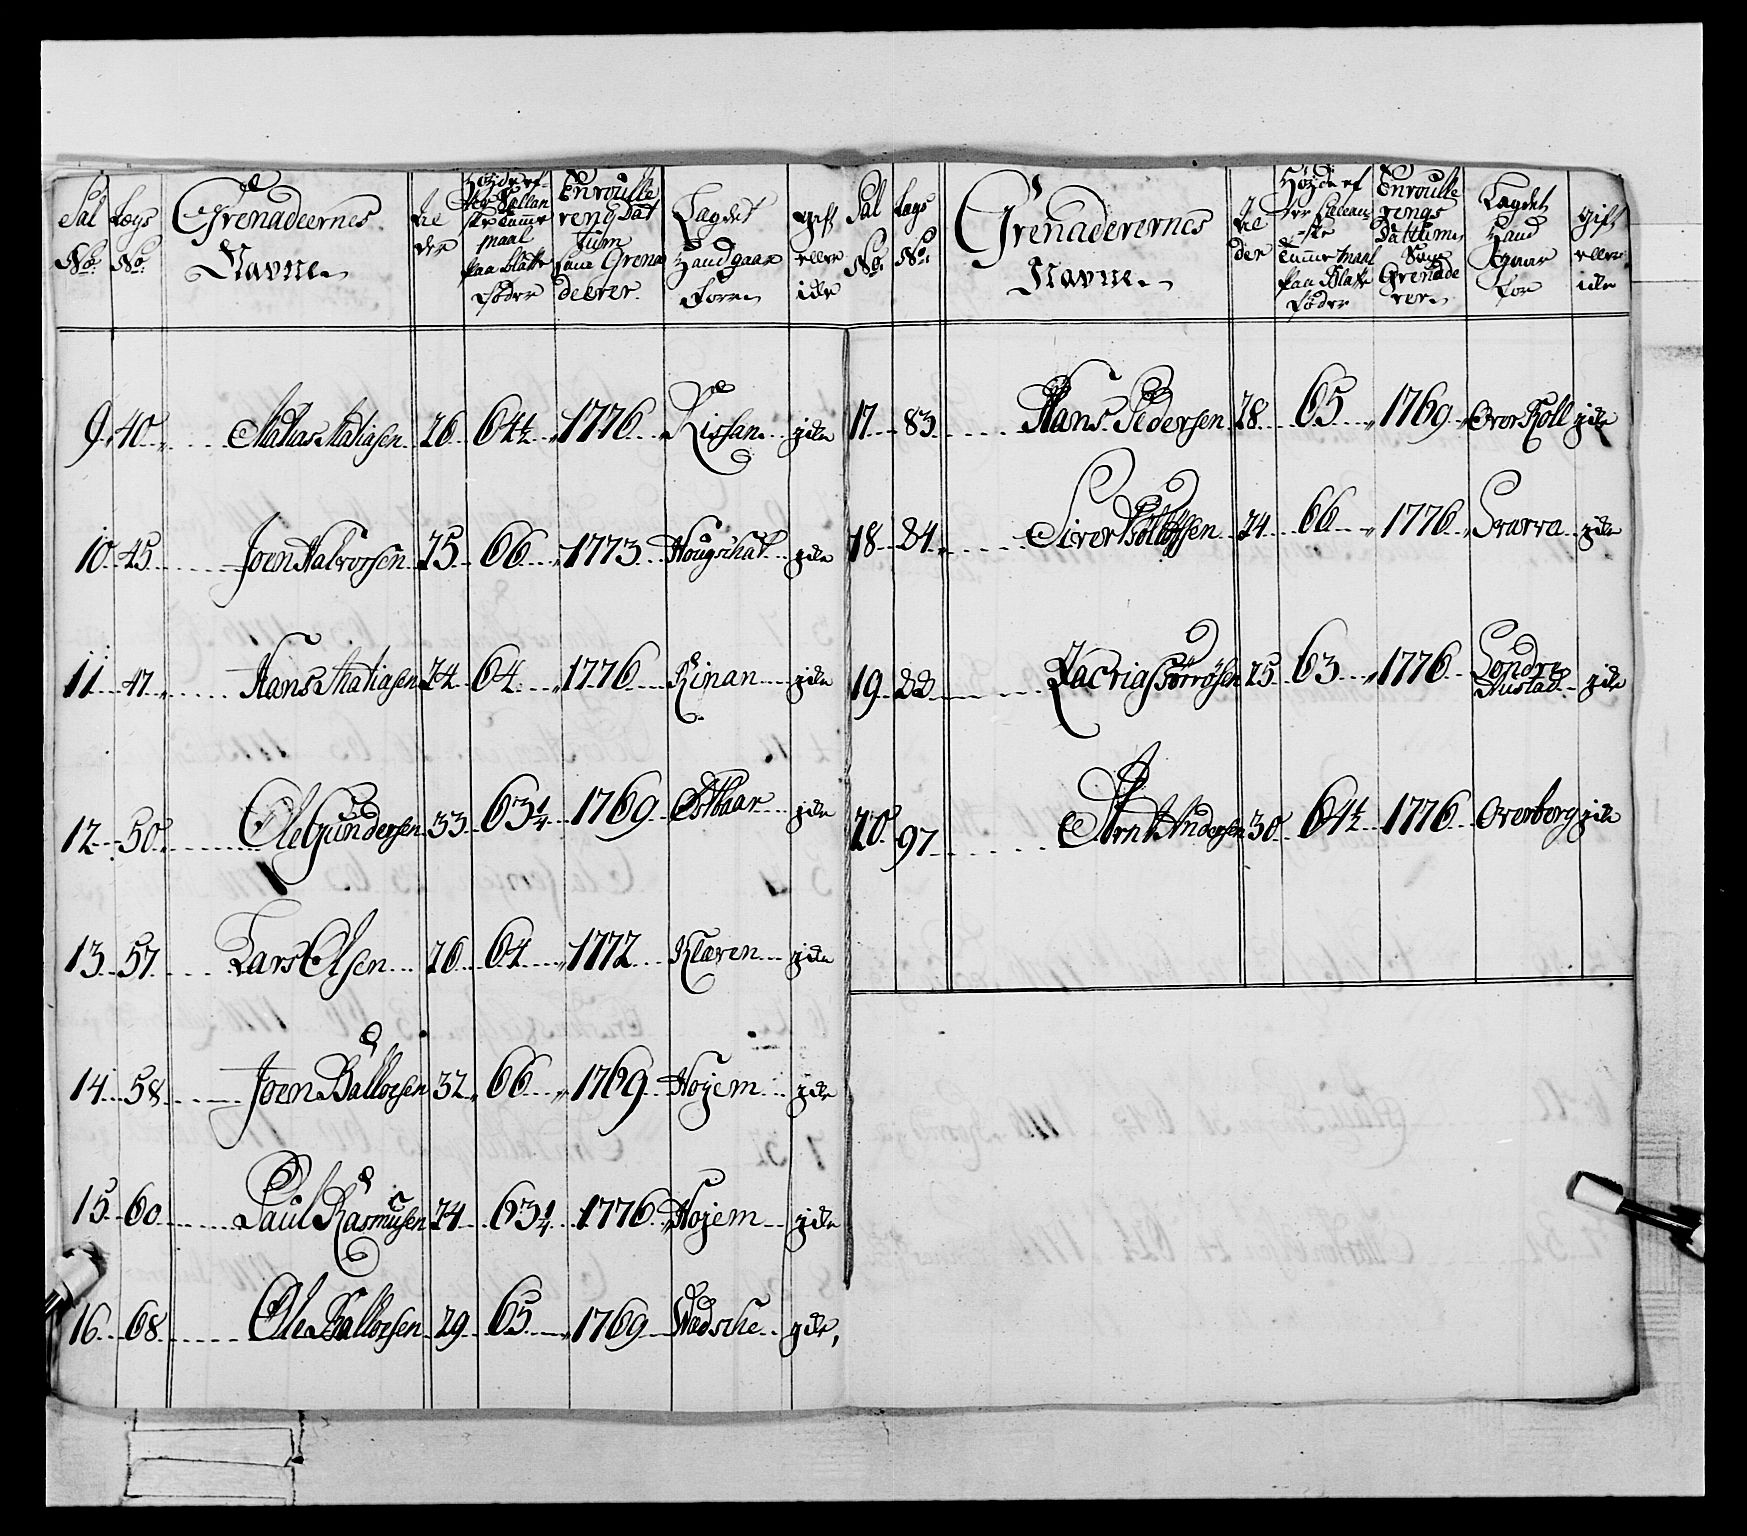 Sal No: Lægs No: Grenadeernes Navne Al der Høyde ef ter Sællan ske Tumme maal paa blotte Fødder Enroulle rengs Dat tum som Grena deerer. Lægdet Hand gaar Forre gift eller icke
9 40 Matias Matiasen 26 64½ 1776 Rissan gift
10 45 Joen Halvorsen 25 66 1773 Hougschat gift
11 47 Hans Matiasen 24 64 1776 Rinan gift
12 50 Ole Gundersen 33 63¼ 1769 Østbaar gift
13 57 Lars Olsen 26 64 1772 Kløven gift
14 58 Joen Balloesen 32 66 1769 Hojem gift
15 60 Paul Rasmusen 24 63¼ 1776 Hojem gift
16 68 Ole Balloesen 29 65 1769 Wedsche gift
Sal No: Lægs No: Grenaderernes Navne Al der Høyde ef ter ske Tumme maal paa Blotte Fødder Enroulle rengs Dattum Som Grenade rer Lægdet Hand Gaar For gift eller icke
17 83 Hans Pedersen 28 65 1769 Over Koll gift
18 84 Siver 24 66 1776 Svarva gift
19 88 Zacrias 25 63 1776 Søndre Mustad gift
20 97 Arnt Andersen 30 64½ 1776 Overberg gift